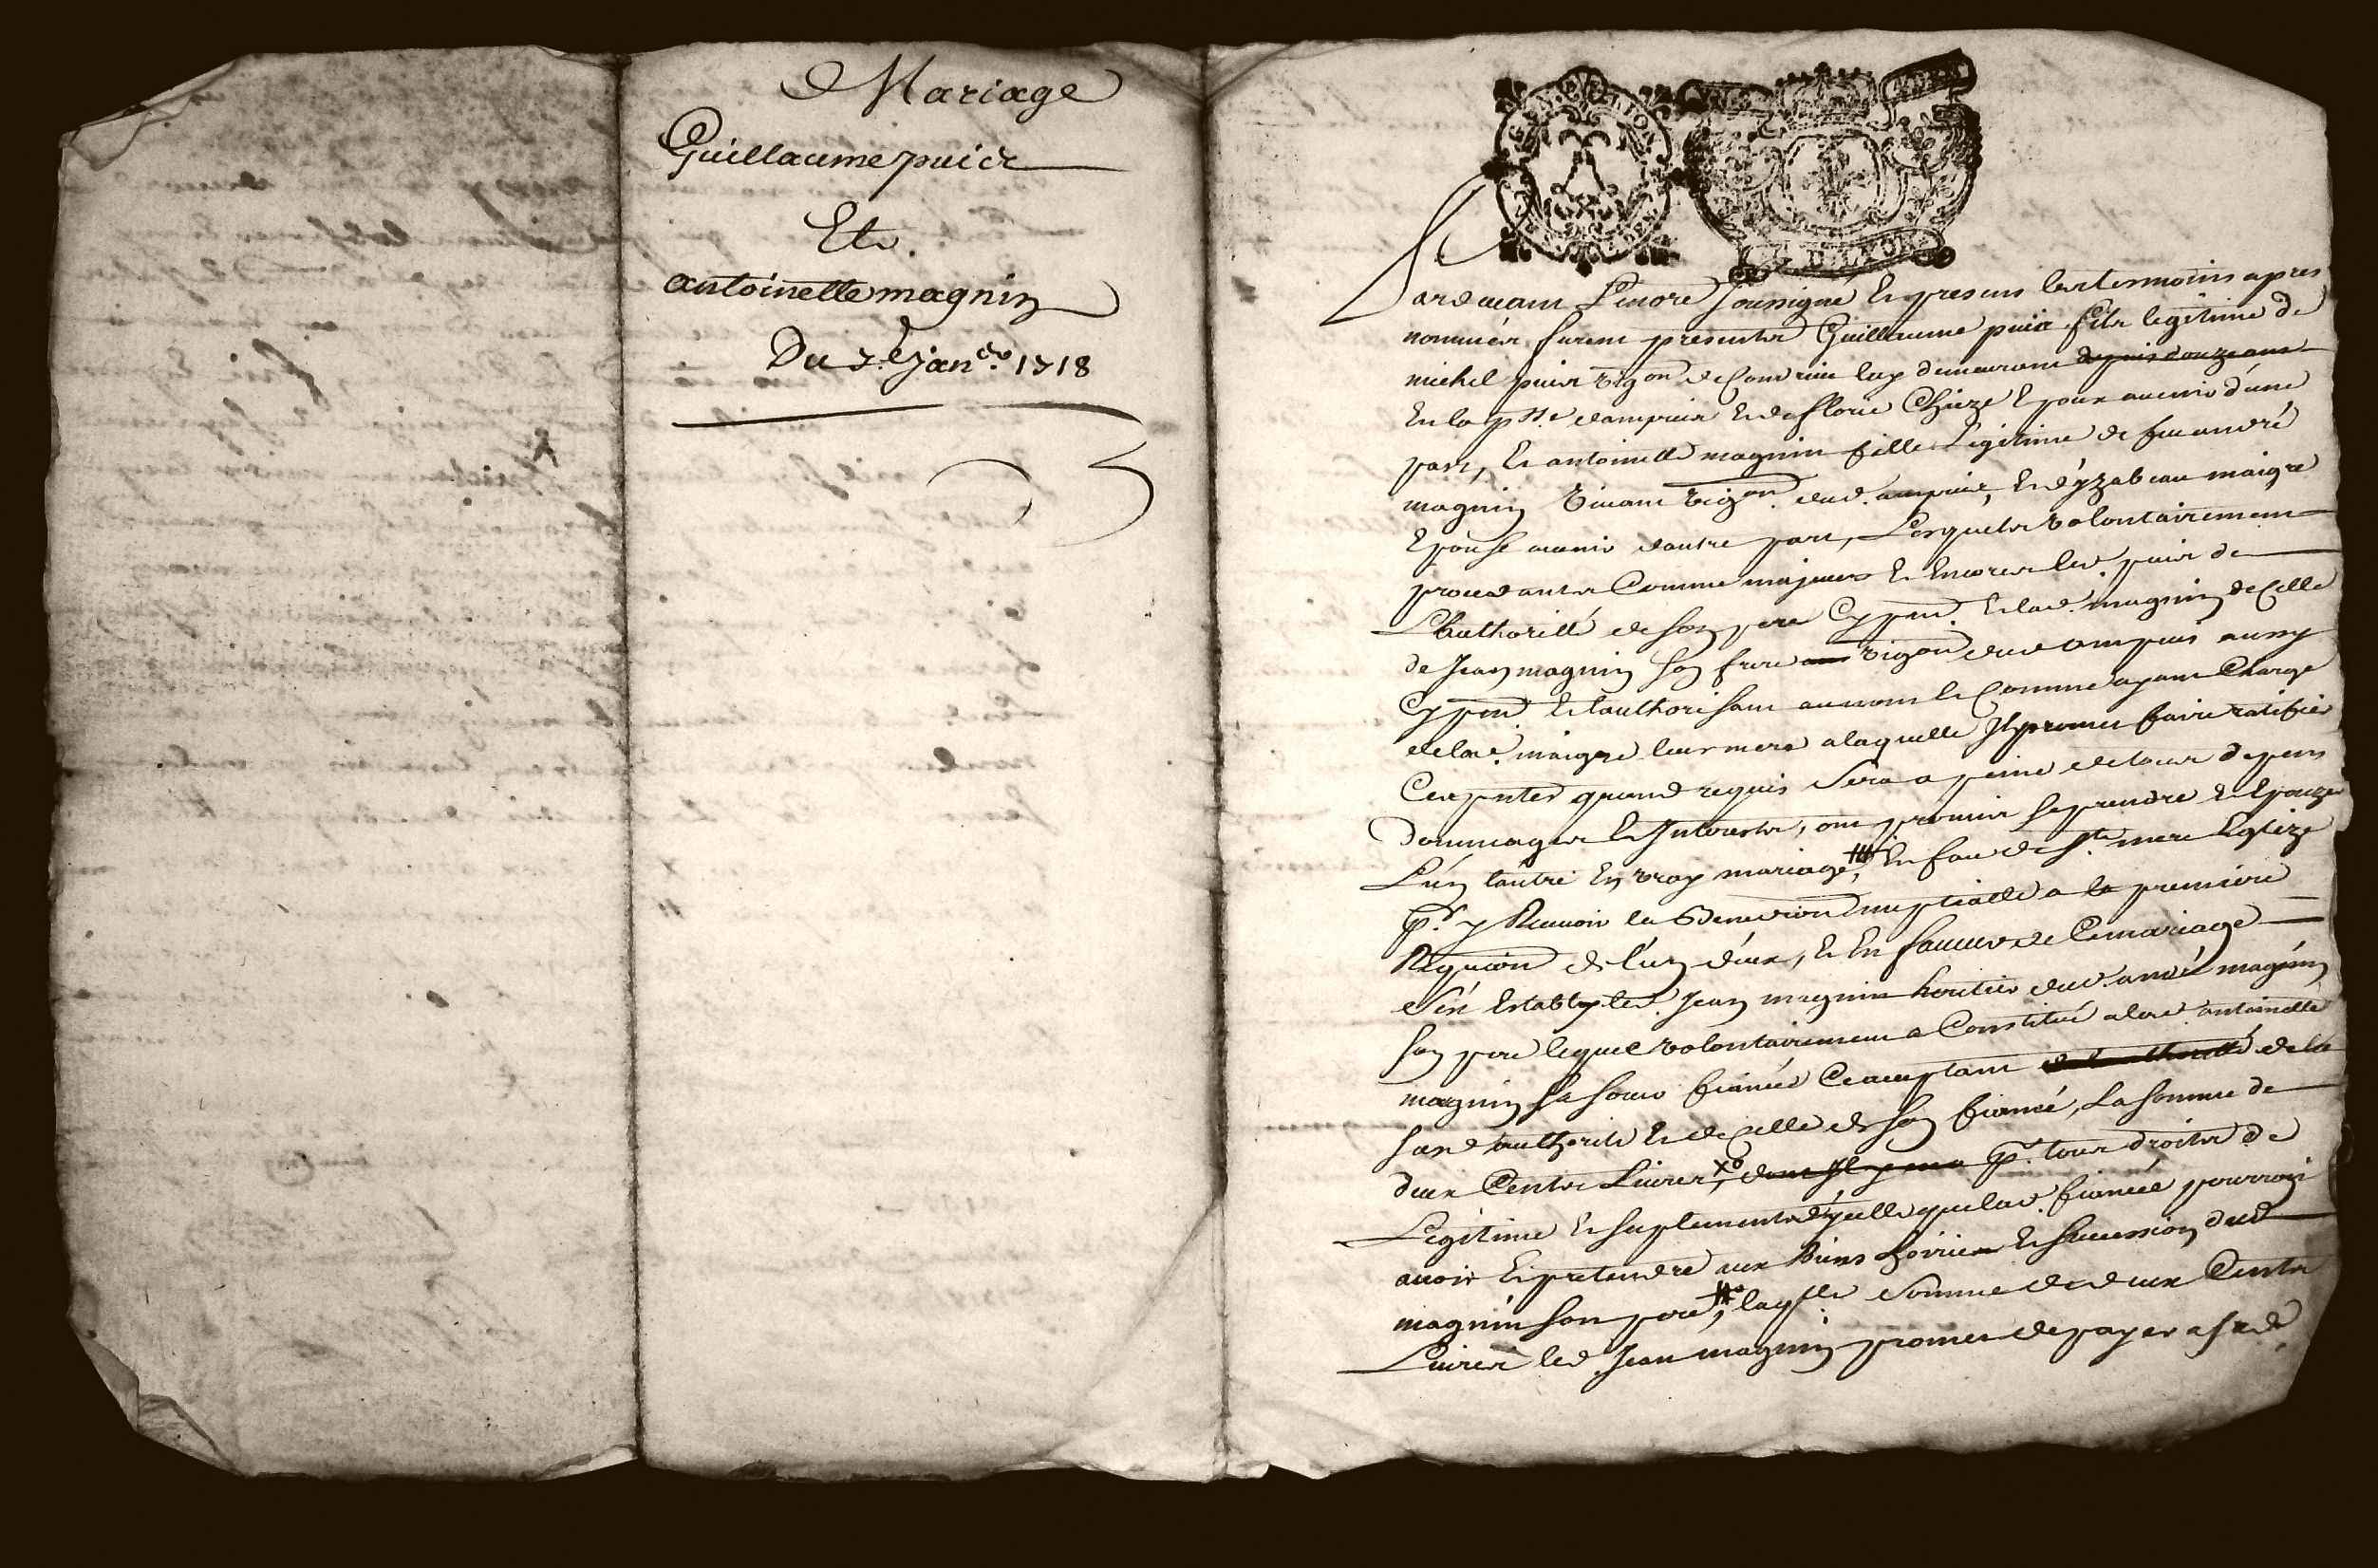 Mariage
Guillaume puis
Et
antoinette magnin
Du 7.e Janer. 1718
GEN. DE LYON
DE LYON
Pardevant Le nore soussigné Et presens les tesmoins apres
nommés furent presents Guillaume puis fils legitime de
michel puis vigon de luy demeurant depuis douze ans
En la psse dampuis Et de florie Chieze Epoux avenir dune
part, Et antoinette magnin fille Legitime de feu andré
magnin vivant vigon. dud. ampuis, Et dÿzabeau maigre
Epouse avenir dautre part, Lesquels volontairement
procedants Comme majeurs Et Encores led. puis de
Lauthorité de son pere Cy pnt. Et lad. magnin de Celle
de Jean magnin son frere vigon dud ampuis aussy
Cy pnt Et lauthorisant au nom Et Comme ayant Charge
de lad. maigre leur mere a laquelle Il promet faire ratifier
Ces pntes quand requis sera a peine de tous depens
dommages Et Interests, ont promis se prendre Et Epouzer
Lun lautre En vray mariage, En face de Ste mere Eglize
pr. y Recevoir la Benediction nuptialle a la premiere
Requion de lun deux, Et En faveur de Ce mariage
sest Estably led. Jean magnin heritier dud. andré magnin
son pere lequel volontairement a Constitué a lad. antoinette
magnin sa soeur fiancée Acceptant de lauthorité de la
susd authorité Et de Celle de son fiancé, La somme de
deux Cents Livres, pr. tous droits de
Legitime Et suplement dycelle que lad. fiancée pourroit
avoir Et pretendre aux Biens hoirie Et succession dud
magnin son pere, laqlle somme de deux Cents
Livres led. Jean magnin promet de payer a sad.